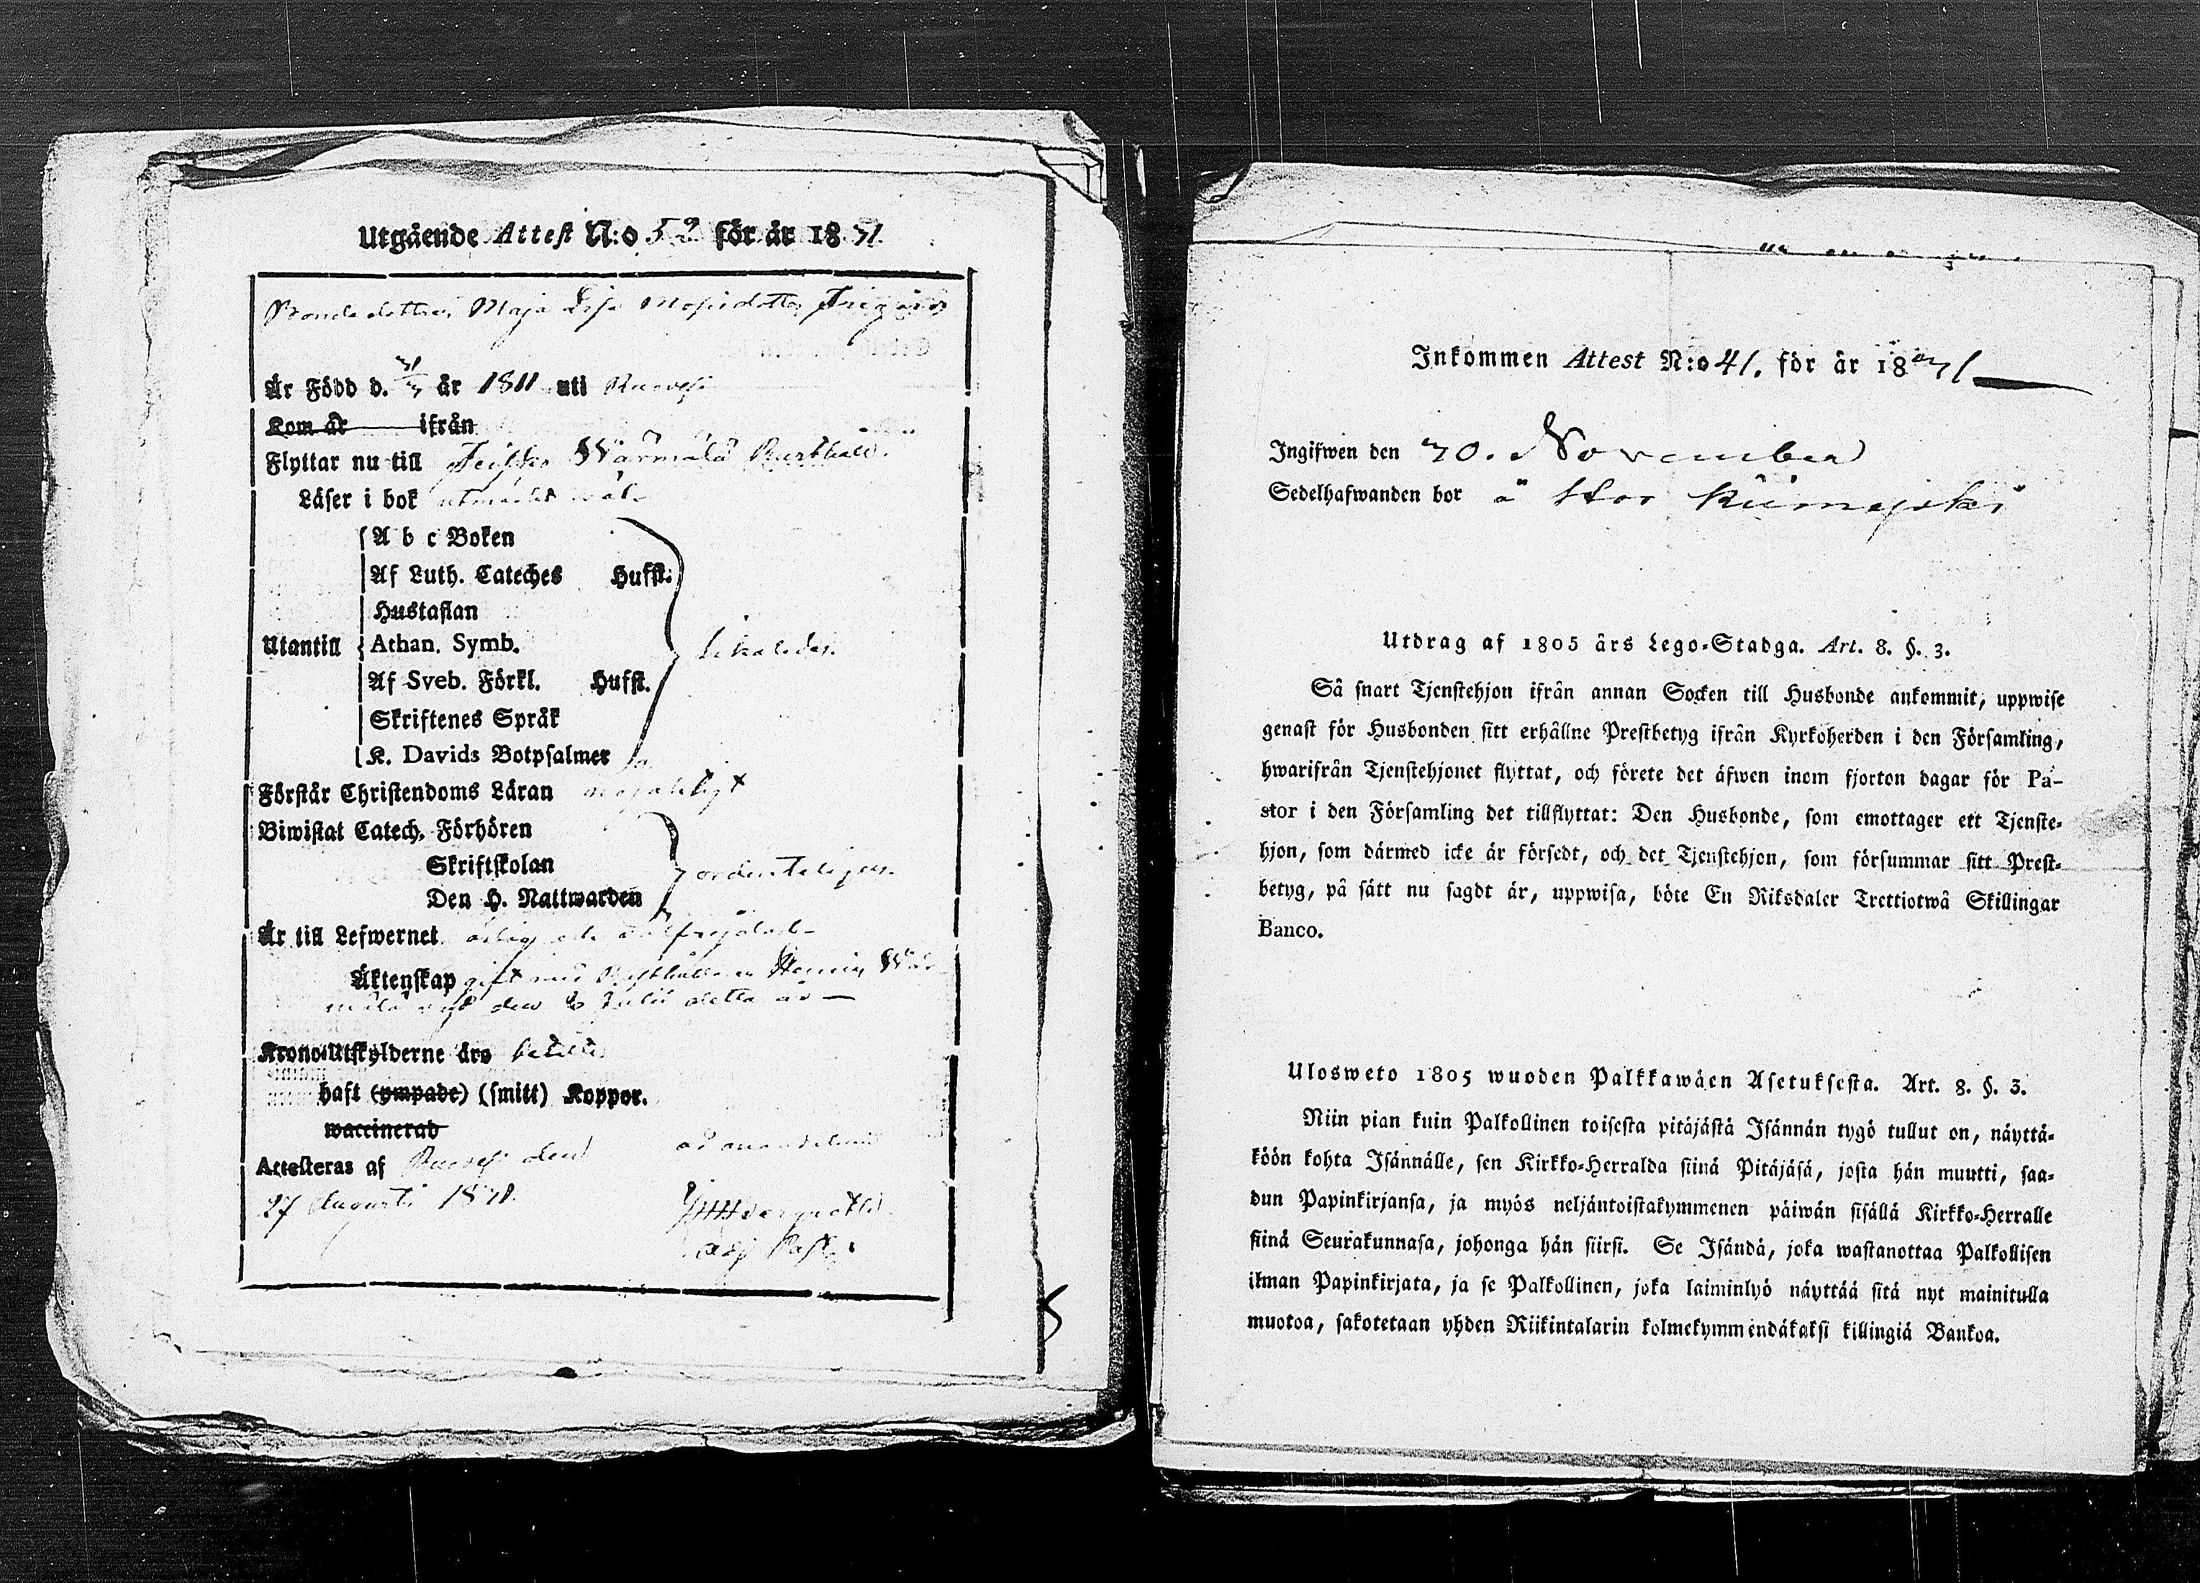 Utgående Attest N:o 52 för år 1831
Bondedottren Maja Lisa
Är Född d. 31/3 år 1811 uti Ruovesi
Kom år ifrån
Flyttar nu till Wärmälä Rusthåll.
Läser i bok wäl
A b c Boken
Af Luth. Cateches Hufst.
Hustaflan
Utantill Athan. Symb. likaledes.
Af Sveb. Förkl. Hufst.
Skriftenes Språk
K. Davids Botpsalmer
Förstår Christendoms Läran
Biwistat Catech. Förhören
Skriftskolan ordenteligen.
Den H. Nattwarden
Är till Lefwernet ärlig och
Äktenskap gift med Rusthållaren Henric Wär-
mälä den 6 Julii detta år —
Krono-Utskylderne äro betalte
haft (ympade) (smitt) Koppor.
waccinerad
Attesteras af Ruovesi den
27 Augusti 1831.
adj Past.
Inkommen Attest N:o 41. för år 1831
Ingifwen den 30. November
Sedelhafwanden bor å Stor
Utdrag af 1805 års Lego-Stadga. Art. 8. §. 3.
Så snart Tjenstehjon ifrån annan Socken till Husbonde ankommit, uppwise
genast för Husbonden sitt erhållne Prestbetyg ifrån Kyrkoherden i den Församling,
hwarifrån Tjenstehjonet flyttat, och förete det äfwen inom fjorton dagar för Pa-
stor i den Församling det tillflyttat: Den Husbonde, som emottager ett Tjenste-
hjon, som därmed icke är försedt, och det Tjenstehjon, som försummar sitt Prest-
betyg, på sätt nu sagdt är, uppwisa, böte En Riksdaler Trettiotwå Skillingar
Banco.
Ulosweto 1805 wuoden Palkkawäen Asetuksesta. Art. 8. §. 3.
Niin pian kuin Palkollinen toisesta pitäjästä Isännän tygö tullut on, näyttä-
köön kohta Isännälle, sen Kirkko-Herralda siinä Pitäjäsä, josta hän muutti, saa-
dun Papinkirjansa, ja myös neljäntoistakymmenen päiwän sisällä Kirkko-Herralle
siinä Seurakunnasa, johonga hän siirsi. Se Isändä, joka wastanottaa Palkollisen
ilman Papinkirjata, ja se Palkollinen, joka laiminlyö näyttää sitä nyt mainitulla
muotoa, sakotetaan yhden Riikintalarin kolmekymmendäkaksi killingiä Bankoa.